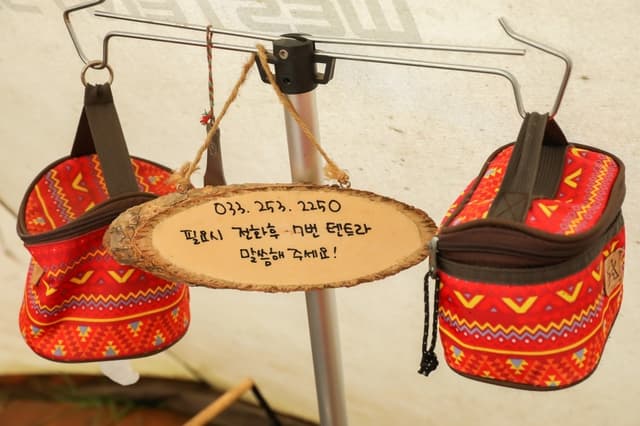 033. 253. 2250
필요시 전화후 7번 텐트라
말씀해 주세요!